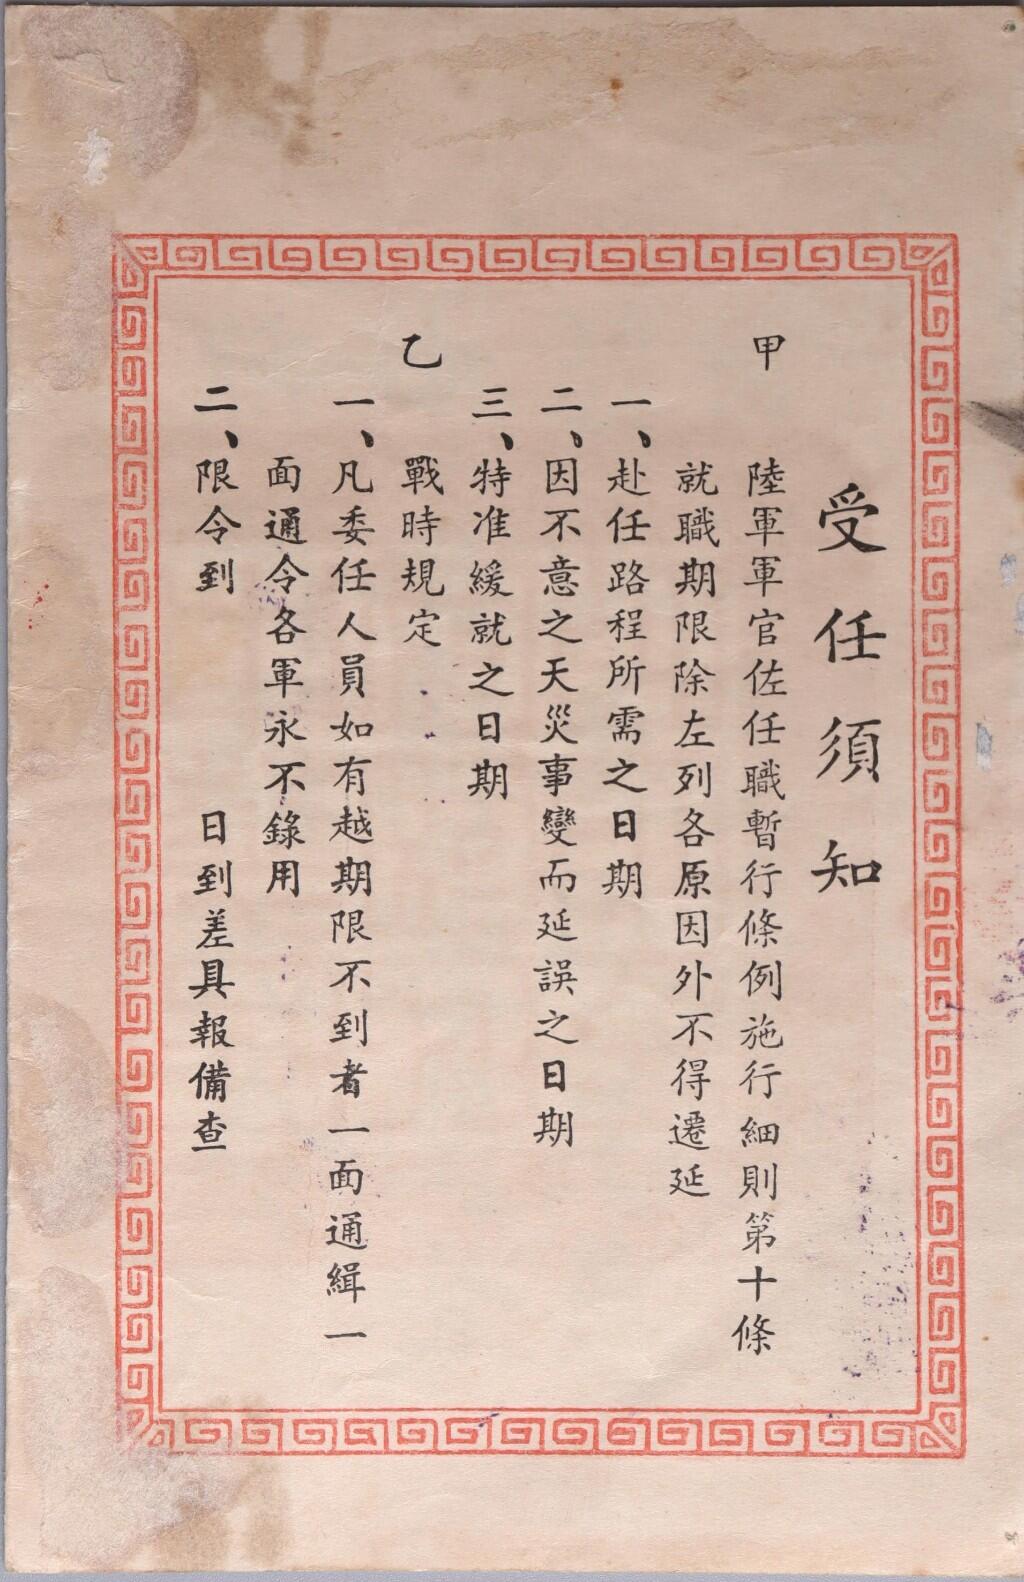 受任須知
甲
陸軍軍官佐任職暫行條例施行細則第十條
就職期限除左列各原因外不得遷延
一、赴任路程所需之日期
二。因不意之天災事變而延誤之日期
三、特准緩就之日期
乙
戰時規定
一、凡委任人員如有越期限不到者一面通緝一
面通令各軍永不錄用
二、限令到　　　　日到差具報備查